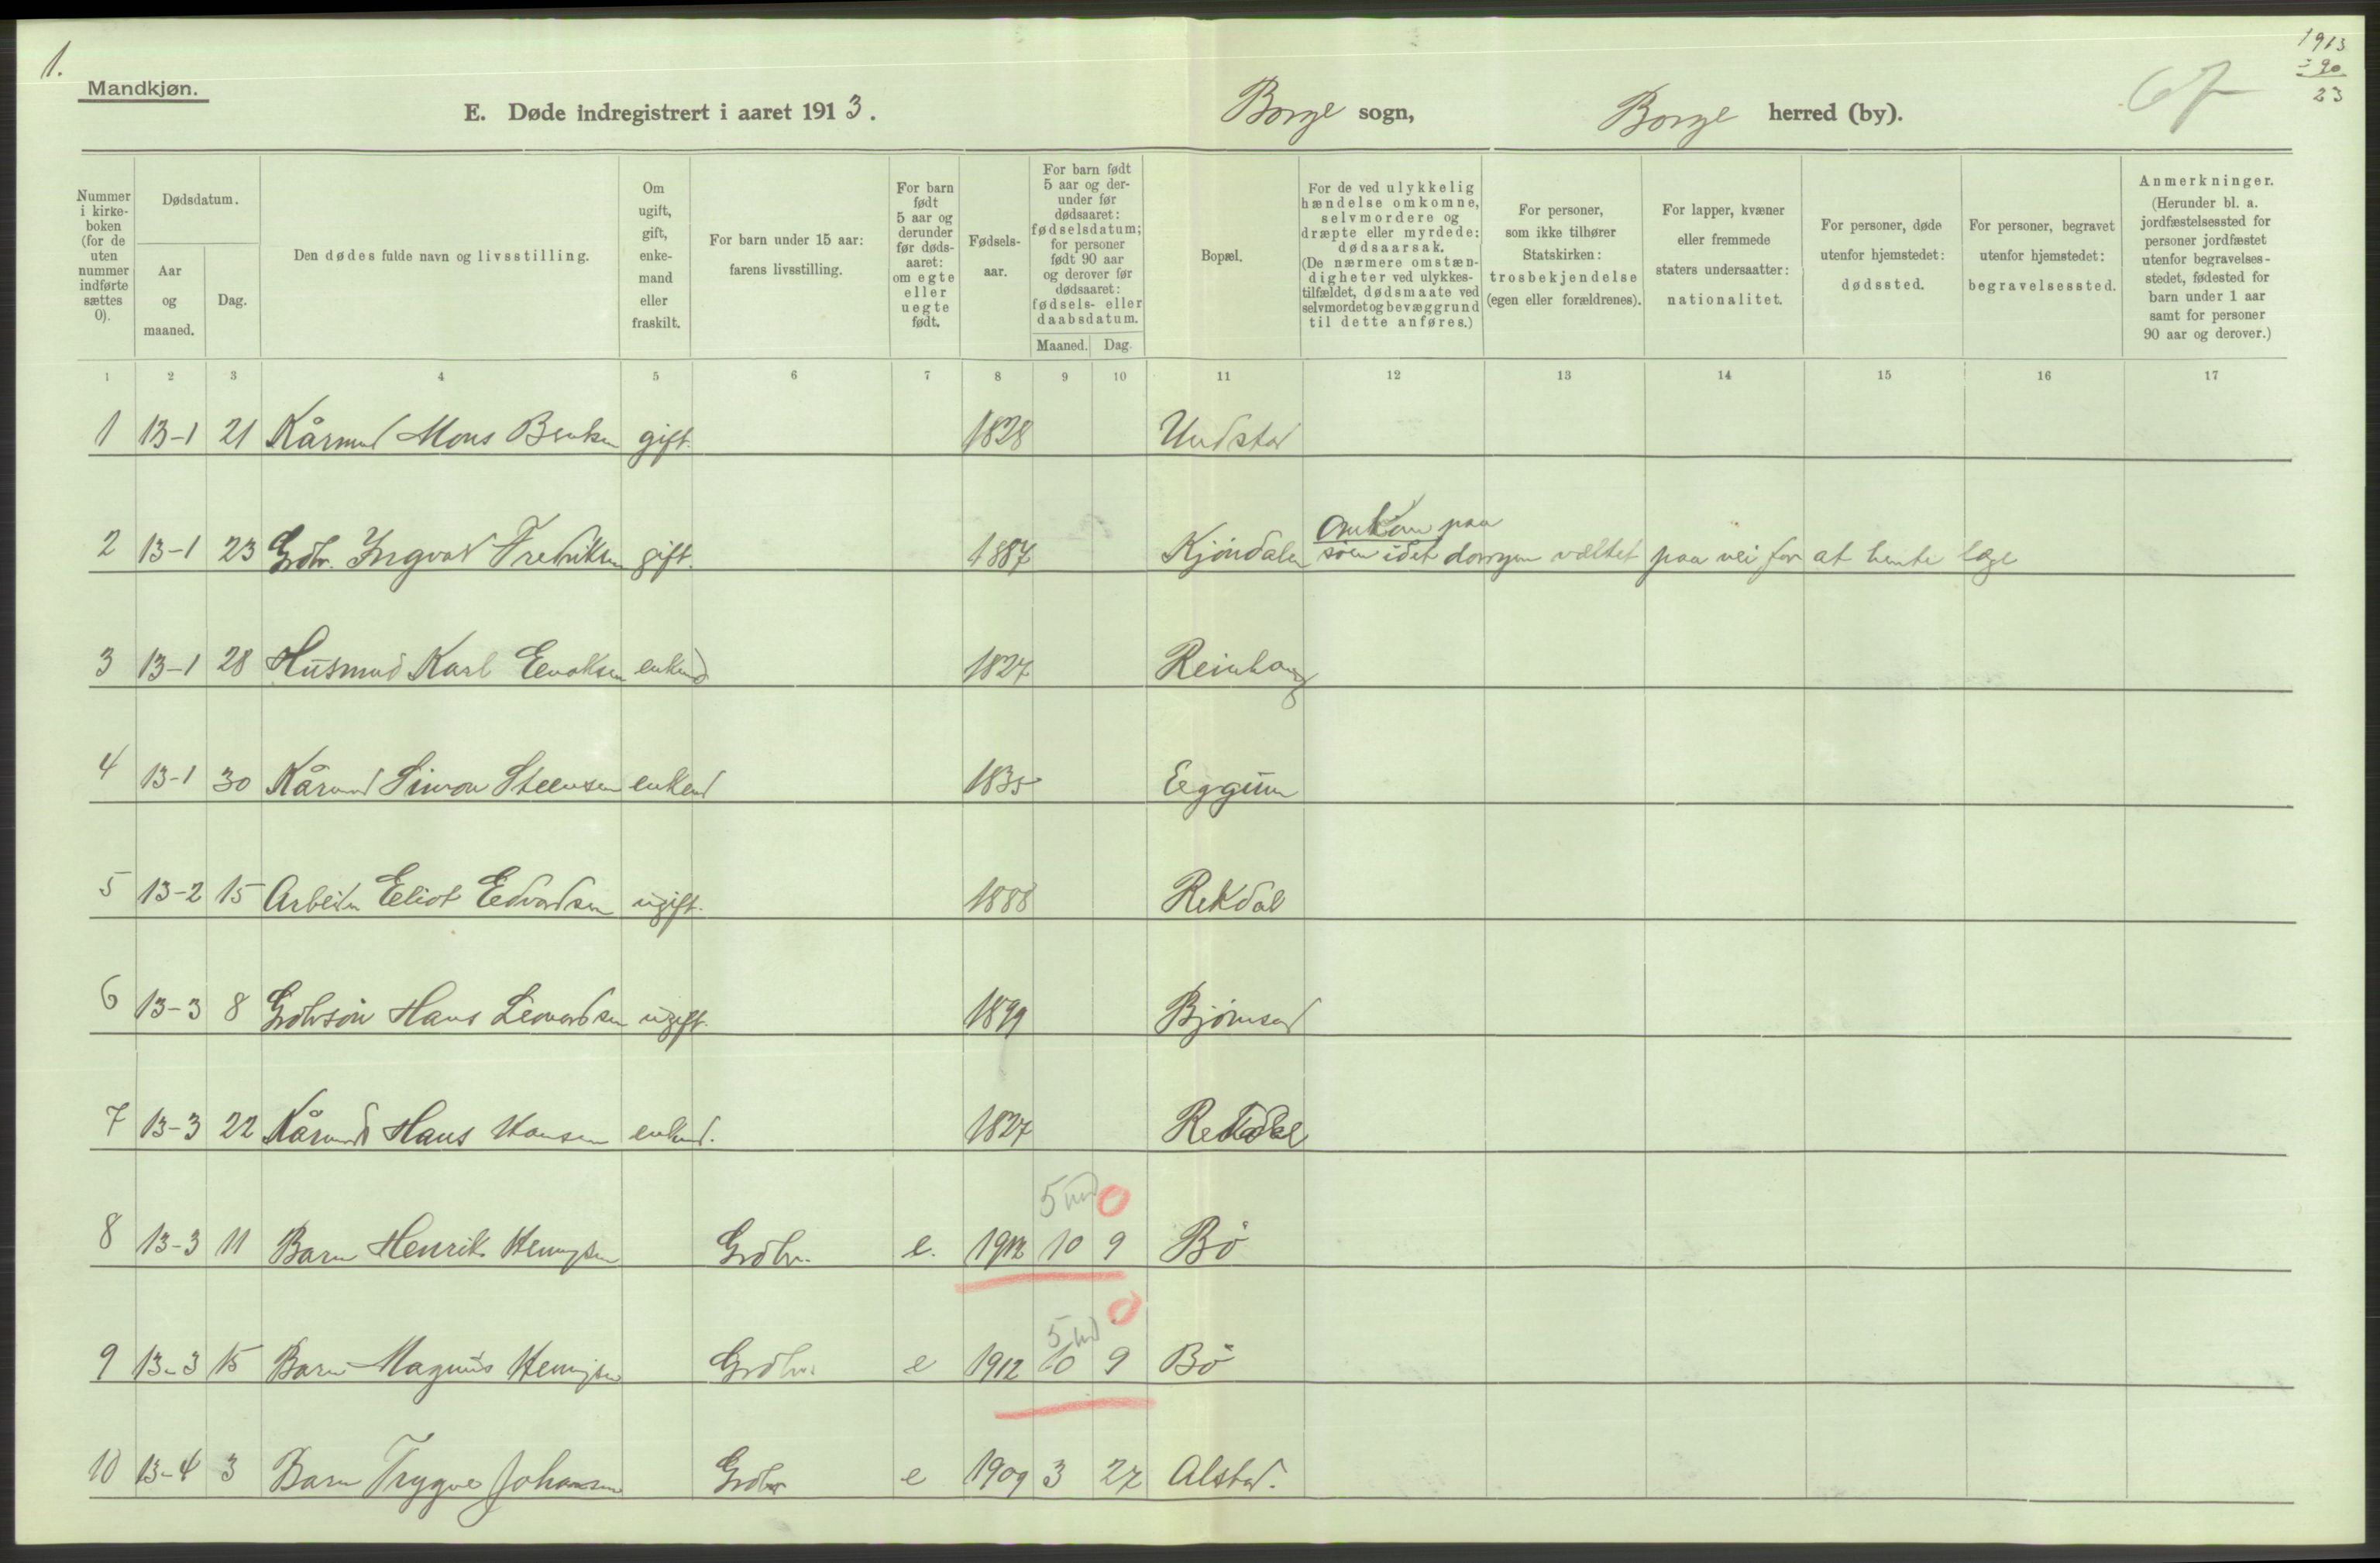 1.
1913
÷ 90
23
Mandkjøn.
67
E. Døde indregistrert i aaret 1913. Borge sogn, Borge herred (by).
Nummer i kirke-boken (for de uten nummer indførte sættes 0).
Dødsdatum.
Aar og maaned.
Dag.
Den dødes fulde navn og livsstilling.
Om ugift, gift, enke-mand eller fraskilt.
For barn under 15 aar: farens livsstilling.
For barn født 5 aar og derunder før døds-aaret: om egte eller uegte født.
Fødsels-aar.
For barn født 5 aar og der-under før dødsaaret: fødselsdatum; for personer født 90 aar og derover før dødsaaret: fødsels- eller daabsdatum.
Maaned. Dag.
Bopæl.
For de ved ulykkelig hændelse omkomne, selvmordere og dræpte eller myrdede: dødsaarsak. (De nærmere omstæn-digheter ved ulykkes-tilfældet, dødsmaate ved selvmordet og bevæggrund til dette anføres.)
For personer, som ikke tilhører Statskirken: trosbekjendelse (egen eller forældrenes).
For lapper, kvæner eller fremmede staters undersaatter: nationalitet.
For personer, døde utenfor hjemstedet: dødssted.
For personer, begravet utenfor hjemstedet: begravelsessted.
Anmerkninger. (Herunder bl. a. jordfæstelsessted for personer jordfæstet utenfor begravelses-stedet, fødested for barn under 1 aar samt for personer 90 aar og derover.)
1 2 3 4 5 6 7 8 9 10 11 12 13 14 15 16 17
1 13-1 21 Kårmand Mons Bentsen gift. 1828 Undstad
Omkom paa
2 13-1 23 Grdbr. Ingvad Fredriksen gift. 1887 Kjøndalen søen idet dorryen væltet paa vei for at hente læge
3 13-1 28 Husmnd Karl Enoksen enkemd 1827 Reinhaug
4 13-1 30 Kårmand Simon Steensen enkemd 1835 Eggum
5 13-2 15 Arbeider Eliot Edvardsen ugift. 1888 Rekdal
6 13-3 8 Grdbrsøn Hans Leonardsen ugift. 1899 Bjørnsand
7 13-3 22 Kårmand Hans Hansen enkemd. 1827 Rekdal
5 md 0
8 13-3 11 Barn Henrik Henrysen Grdbr. e. 1912 10 9 Bö
5 md 0
9 13-3 15 Barn Magnus Henrysen Grdbr. e 1912 10 9 Bö
10 13-4 3 Barn Trygve Johansen Grdbr e 1909 3 27 Alstad.